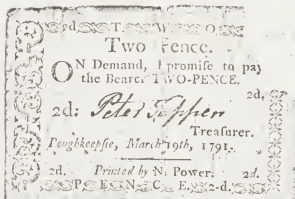 2d. T. W. O.
Two Pence.
ON Demand, I promise to pay
the Bearer TWO-PENCE.
2d,
2d: Peter Tappen
Treasurer.
Poughkeepsie, March 19th, 1791.
2d. Printed by N. Power. 2d.
P E N C E. 2-d.